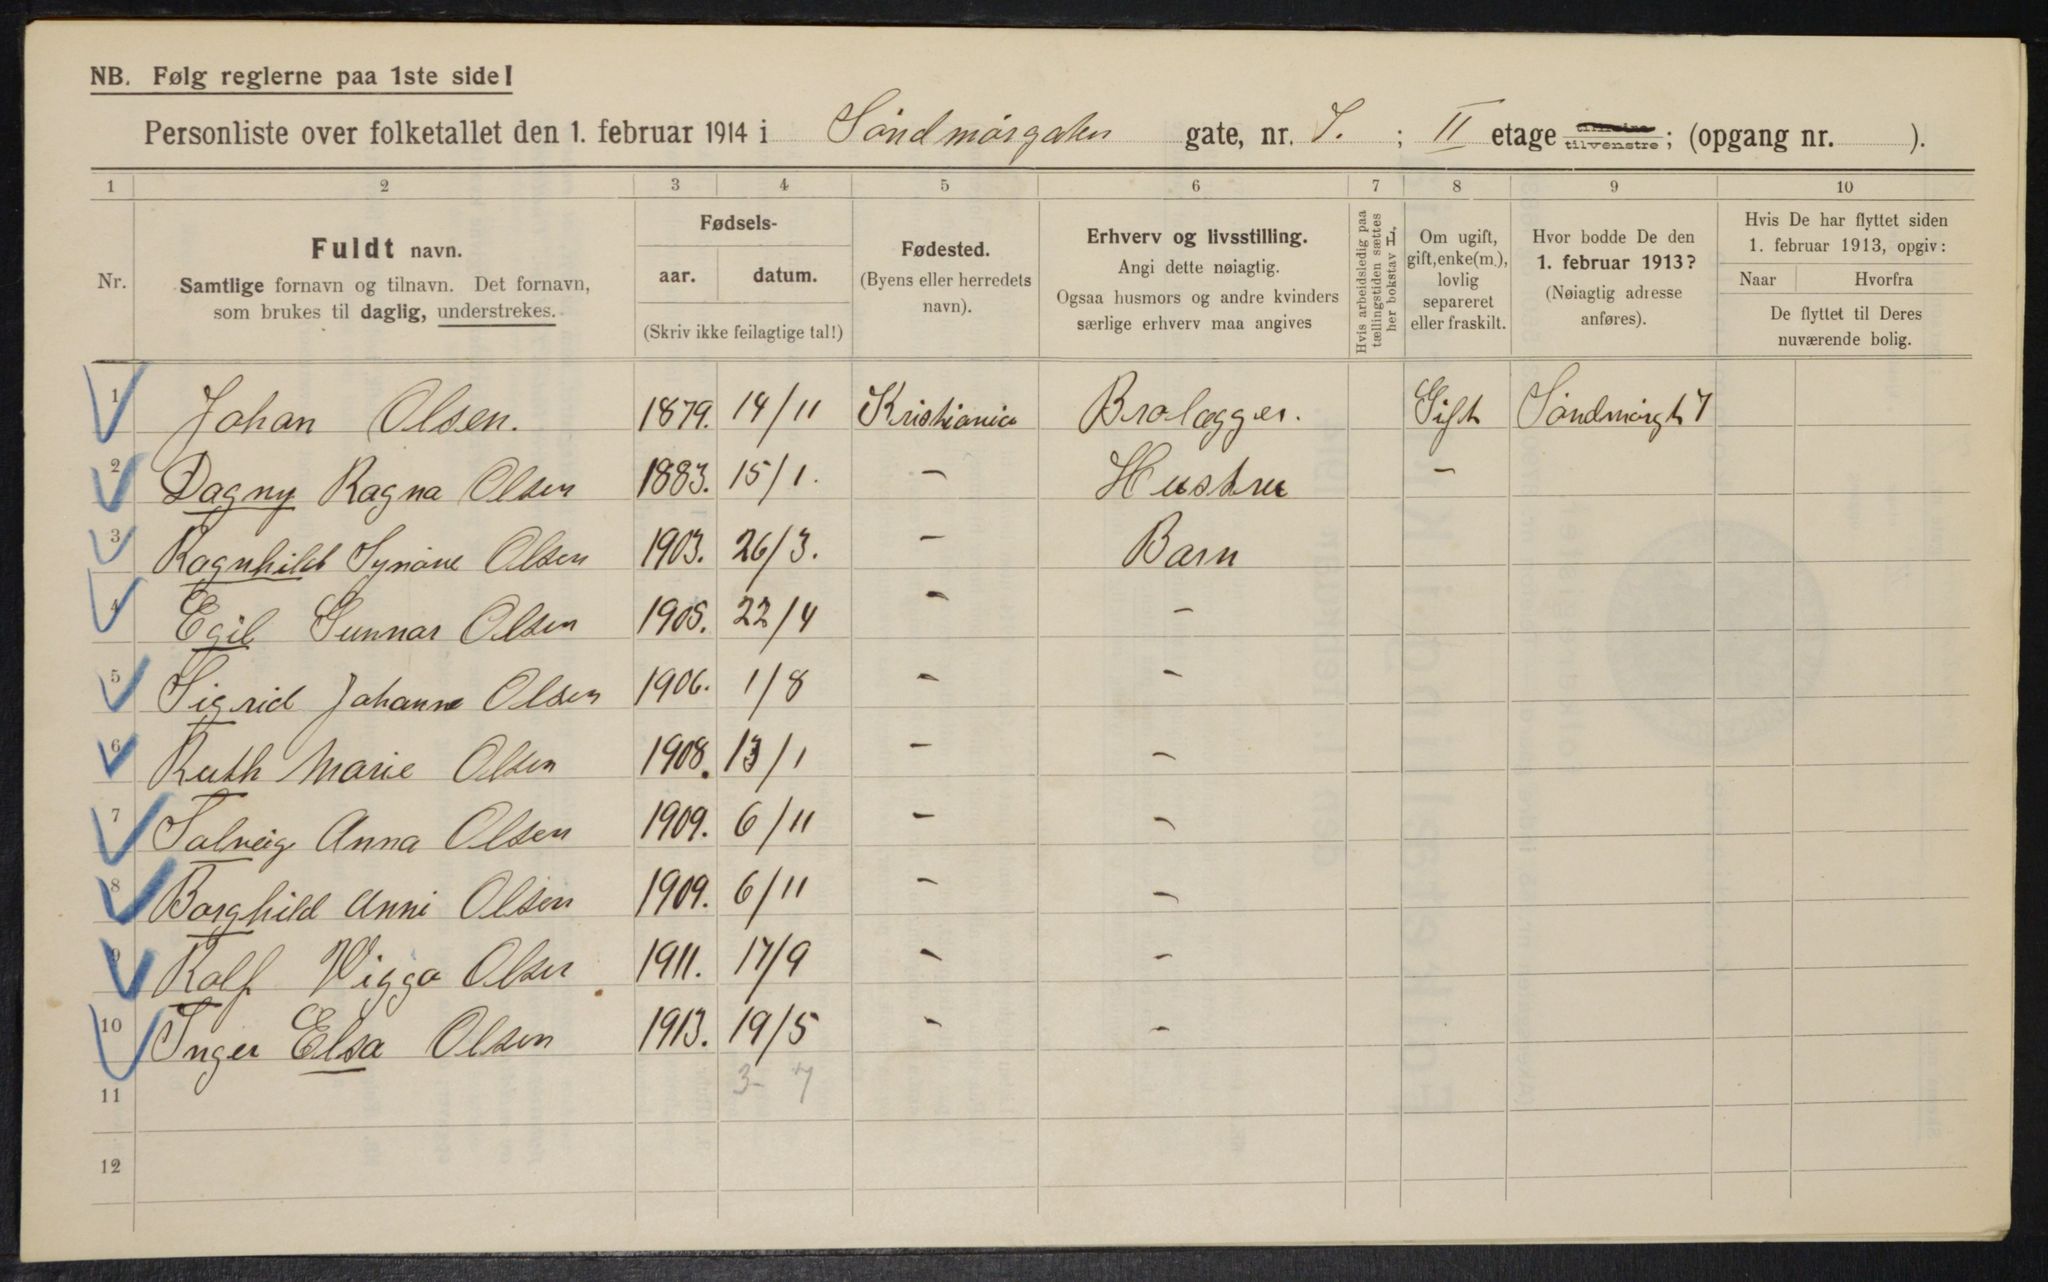 NB. Følg reglerne paa 1ste side!
Personliste over folketallet den 1. februar 1914 i Søndmørgaten gate, nr. 7. ; II etage tilhøire tilvenstre; (opgang nr. ).
1 2 3 4 5 6 7 8 9 10
Nr.
Fuldt navn.
Samtlige fornavn og tilnavn. Det fornavn,
som brukes til daglig, understrekes.
Fødsels-
aar. datum.
(Skriv ikke feilagtige tal!)
Fødested.
(Byens eller herredets
navn).
Erhverv og livsstilling.
Angi dette nøiagtig.
Ogsaa husmors og andre kvinders
særlige erhverv maa angives
Hvis arbeidsledig paa
tællingstiden sættes
her bokstav L.
Om ugift,
gift, enke(m.),
lovlig
separeret
eller fraskilt.
Hvor bodde De den
1. februar 1913?
(Nøiagtig adresse
anføres).
Hvis De har flyttet siden
1. februar 1913, opgiv:
Naar Hvorfra
De flyttet til Deres
nuværende bolig.
1 Johan Olsen. 1879. 14/11 Kristiania Brolægger. Gift Søndmørgt 7
2 Dagny Ragna Olsen 1883. 15/1. - Hustru -
3 Ragnhild Synøve Olsen 1903. 26/3. - Barn
4 Egil Gunnar Olsen 1905. 22/4 - -
5 Sigrid Johanne Olsen 1906. 1/8 - -
6 Ruth Marie Olsen 1908. 13/1 - -
7 Solveig Anna Olsen 1909. 6/11 - -
8 Borghild Anni Olsen 1909. 6/11 - -
9 Rolf Viggo Olsen 1911. 17/9 - -
10 Inger Elsa Olsen 1913. 19/5 - -
11 3 - 7
12